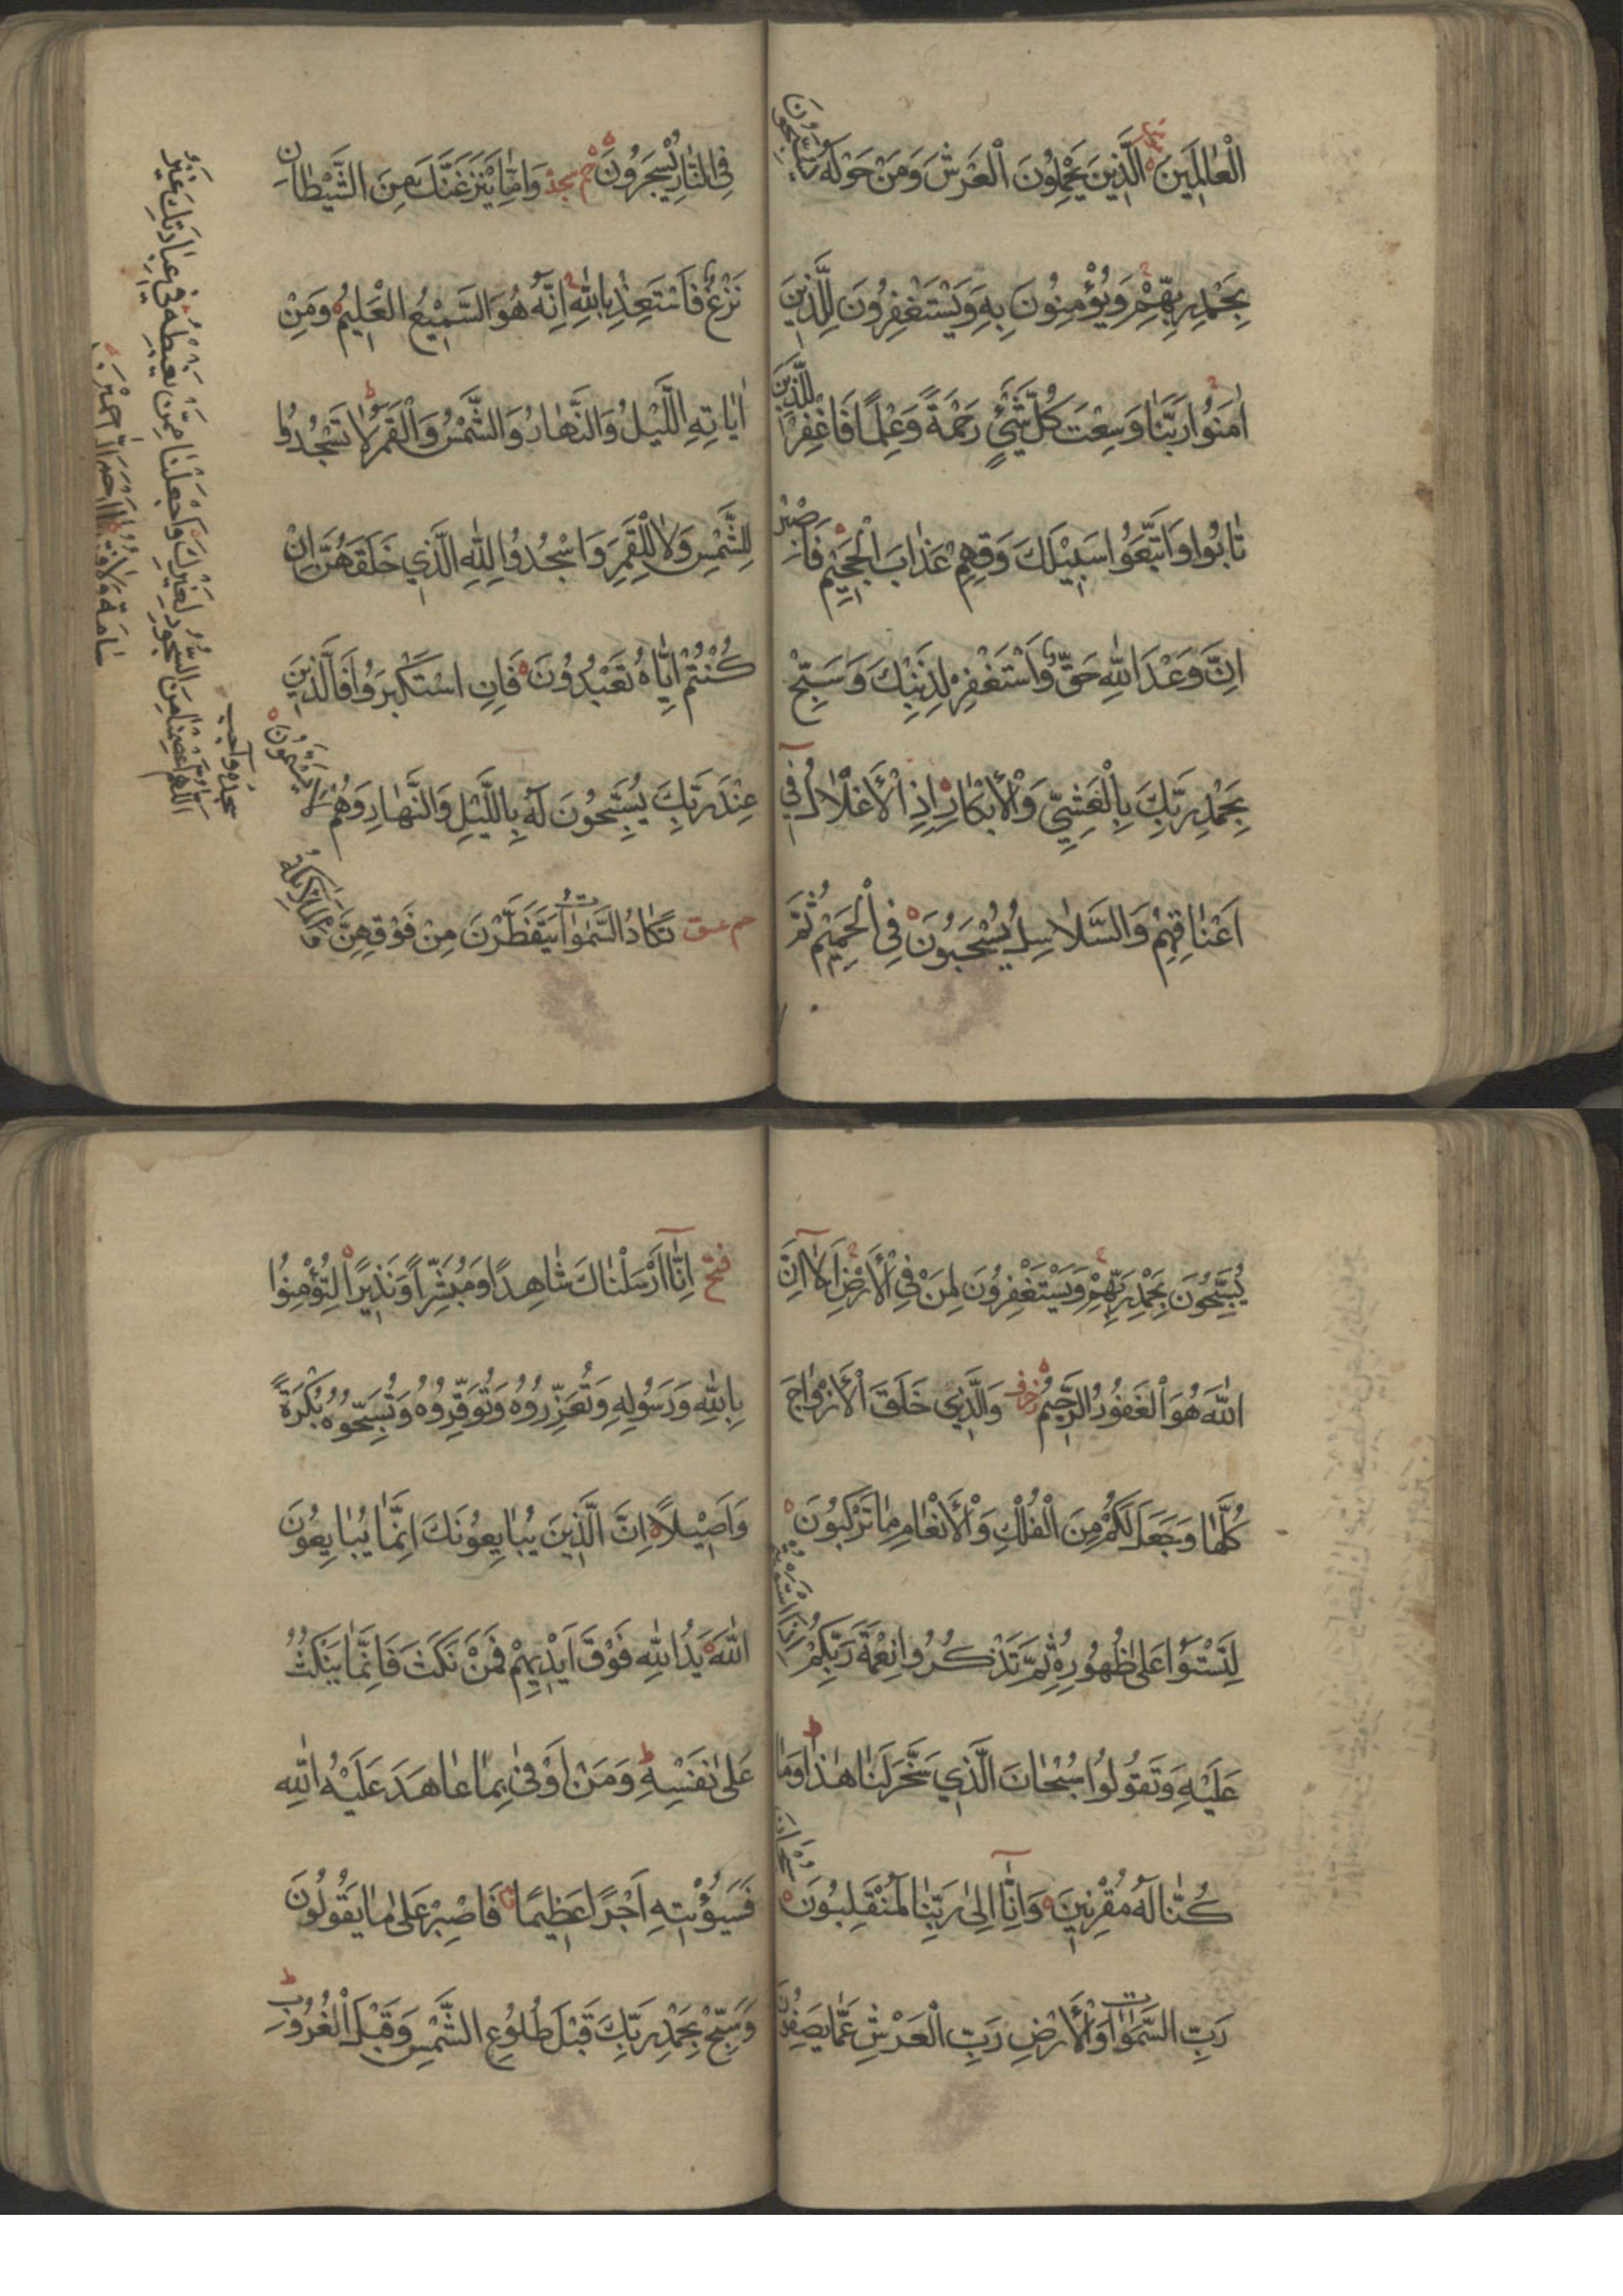 الْعَالَمِينَ الَّذِينَ يَحْمِلُونَ الْعَرْشَ وَمَنْ حَوْلَهُ يُسَبِّحُونَ
بِحَمْدِ رَبِّهِمْ وَيُؤْمِنُونَ بِهِ وَيَسْتَغْفِرُونَ لِلَّذِينَ
اٰمَنُوا رَبَّنَا وَسِعْتَ كُلَّ شَيْءٍ رَحْمَةً وَعِلْمًا فَاغْفِرْ لِلَّذِينَ
تَابُوا وَاتَّبَعُوا سَبِيلَكَ وَقِهِمْ عَذَابَ الْجَحِيمِ فَاصْبِرْ
اِنَّ وَعْدَ اللّٰهِ حَقٌّ وَاسْتَغْفِرْ لِذَنْبِكَ وَسَبِّحْ
بِحَمْدِ رَبِّكَ بِالْعَشِيِّ وَالْأَبْكَارِ اِذِ الْأَغْلَالُ فِي
اَعْنَاقِهِمْ وَالسَّلَاسِلُ يُسْحَبُونَ فِي الْحَمِيمِ ثُمَّ
فِي النَّارِ يُسْجَرُونَ حم سجد وَاِمَّا يَنْزَغَنَّكَ مِنَ الشَّيْطَانِ
نَزْغٌ فَاسْتَعِذْ بِاللّٰهِ اِنَّهُ هُوَ السَّمِيعُ الْعَلِيمُ وَمِنْ
اٰيَاتِهِ اللَّيْلُ وَالنَّهَارُ وَالشَّمْسُ وَالْقَمَرُ لَا تَسْجُدُوا
لِلشَّمْسِ وَلَا لِلْقَمَرِ وَاسْجُدُوا لِلّٰهِ الَّذِي خَلَقَهُنَّ اِنْ
كُنْتُمْ اِيَّاهُ تَعْبُدُونَ فَاِنِ اسْتَكْبَرُوا فَالَّذِينَ
عِنْدَ رَبِّكَ يُسَبِّحُونَ لَهُ بِاللَّيْلِ وَالنَّهَارِ وَهُمْ لَا يَسْأَمُونَ
حم عسق تَكَادُ السَّمٰوَاتُ يَتَفَطَّرْنَ مِنْ فَوْقِهِنَّ وَالْمَلَائِكَةُ
سجده واجب
اَللّٰهُمَّ اعْصِمْنَا مِنَ السُّجُودِ لِغَيْرِكَ وَاجْعَلْنَا مِمَّنْ يُعْطِيهِ فِي عِبَادَتِكَ غَيْرُ
سَامَةٍ وَلَا فَتْرَةٍ
يُسَبِّحُونَ بِحَمْدِ رَبِّهِمْ وَيَسْتَغْفِرُونَ لِمَنْ فِي الْأَرْضِ اَلَا اِنَّ
اللّٰهَ هُوَ الْغَفُورُ الرَّحِيمُ زخرف وَالَّذِي خَلَقَ الْأَزْوَاجَ
كُلَّهَا وَجَعَلَ لَكُمْ مِنَ الْفُلْكِ وَالْأَنْعَامِ مَا تَرْكَبُونَ
لِتَسْتَوُا عَلَى ظُهُورِهِ ثُمَّ تَذْكُرُوا نِعْمَةَ رَبِّكُمْ اِذَا اسْتَوَيْتُمْ
عَلَيْهِ وَتَقُولُوا سُبْحَانَ الَّذِي سَخَّرَ لَنَا هٰذَا وَمَا
كُنَّا لَهُ مُقْرِنِينَ وَاِنَّا اِلَى رَبِّنَا لَمُنْقَلِبُونَ سُبْحَانَ
رَبِّ السَّمٰوَاتِ وَالْأَرْضِ رَبِّ الْعَرْشِ عَمَّا يَصِفُونَ
فتح اِنَّا اَرْسَلْنَاكَ شَاهِدًا وَمُبَشِّرًا وَنَذِيرًا لِتُؤْمِنُوا
بِاللّٰهِ وَرَسُولِهِ وَتُعَزِّرُوهُ وَتُوَقِّرُوهُ وَتُسَبِّحُوهُ بُكْرَةً
وَاَصِيلًا اِنَّ الَّذِينَ يُبَايِعُونَكَ اِنَّمَا يُبَايِعُونَ
اللّٰهَ يَدُ اللّٰهِ فَوْقَ اَيْدِيهِمْ فَمَنْ نَكَثَ فَاِنَّمَا يَنْكُثُ
عَلَى نَفْسِهِ وَمَنْ اَوْفٰى بِمَا عَاهَدَ عَلَيْهُ اللّٰهَ
فَسَيُؤْتِيهِ اَجْرًا عَظِيمًا ق فَاصْبِرْ عَلَى مَا يَقُولُونَ
وَسَبِّحْ بِحَمْدِ رَبِّكَ قَبْلَ طُلُوعِ الشَّمْسِ وَقَبْلَ الْغُرُوبِ